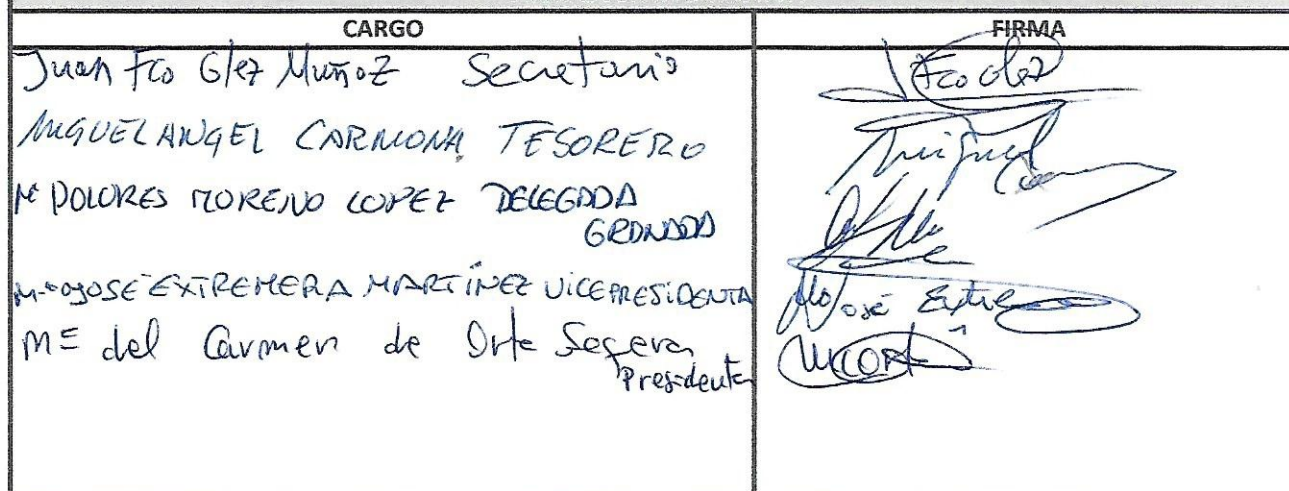 CARGO FIRMA
Juan Fco Glez Muñoz Secretario
Fco Glez
MIGUEL ANGEL CARMONA TESORERO
Miguel
Mª DOLORES MORENO LOPEZ DELEGADA
GRANADA
Mª JOSE EXTREMERA MARTÍNEZ VICEPRESIDENTA
Mª José Extre
Mª del Carmen de Orte Segera
Presidenta